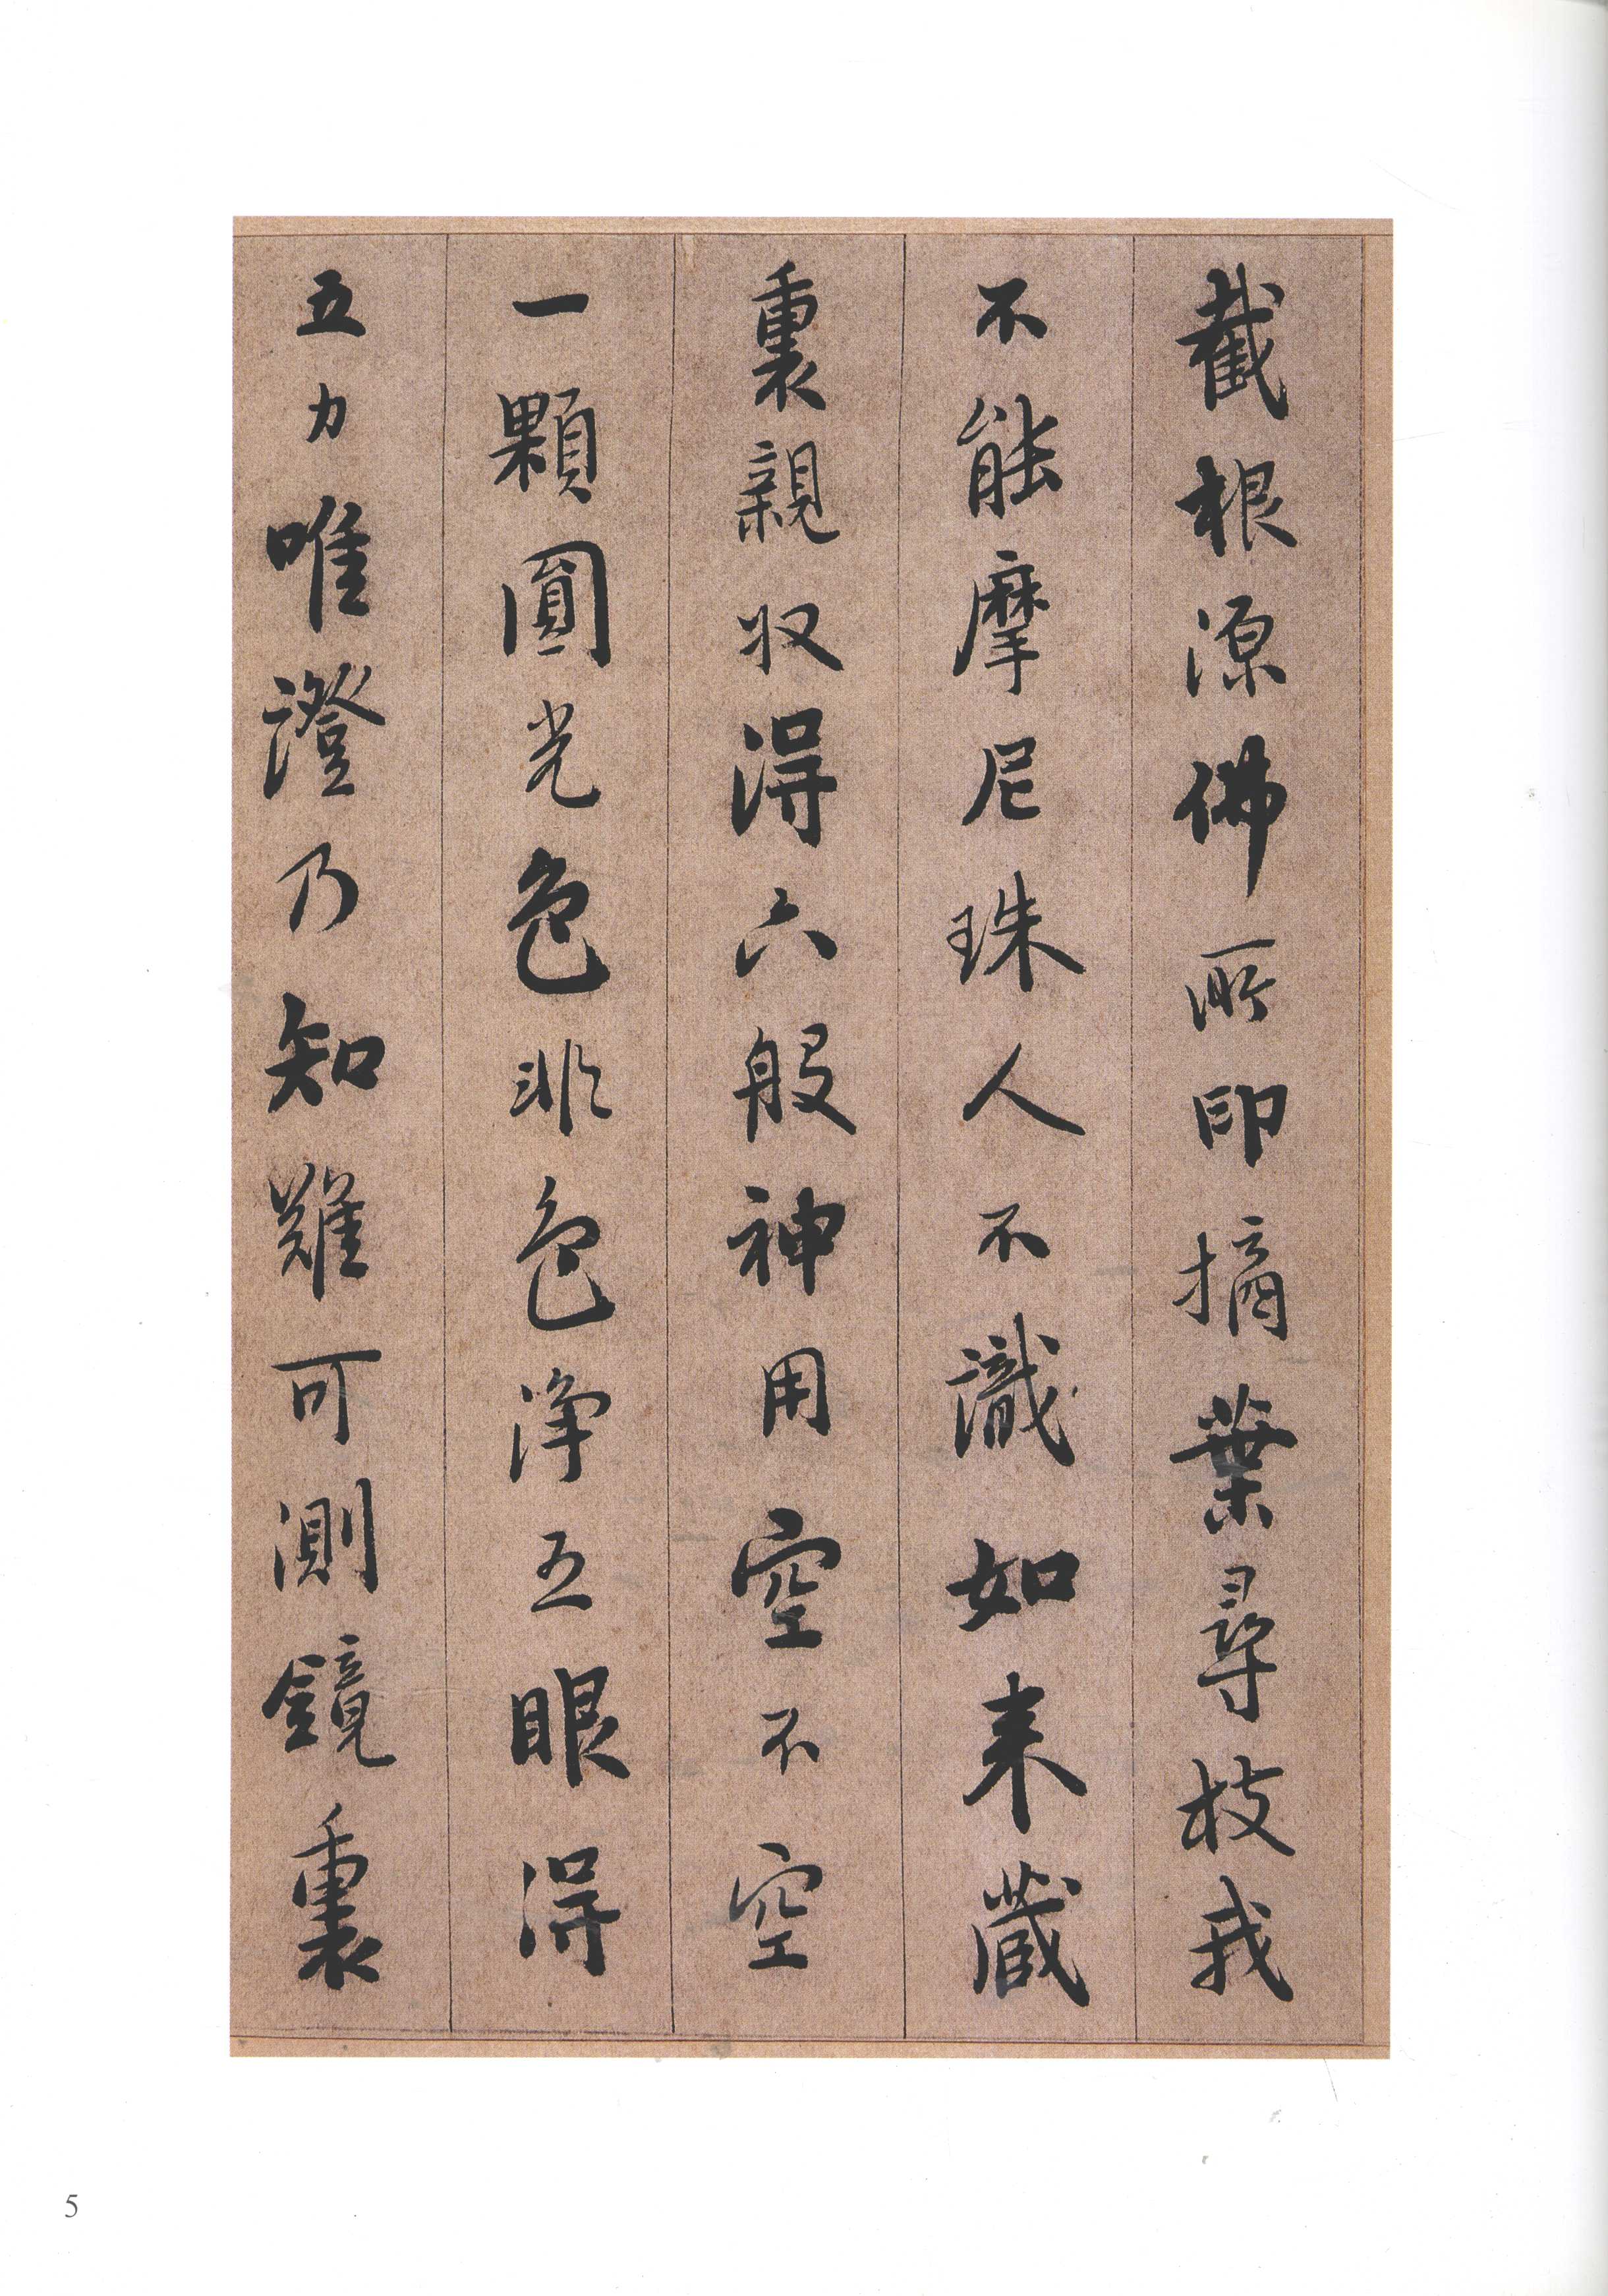 截根源佛所印摘葉尋枝我
不能摩尼珠人不識如来藏
裏親収得六般神用空不空
一顆圓光色非色淨五眼得
五力唯證乃知難可測鏡裏
5